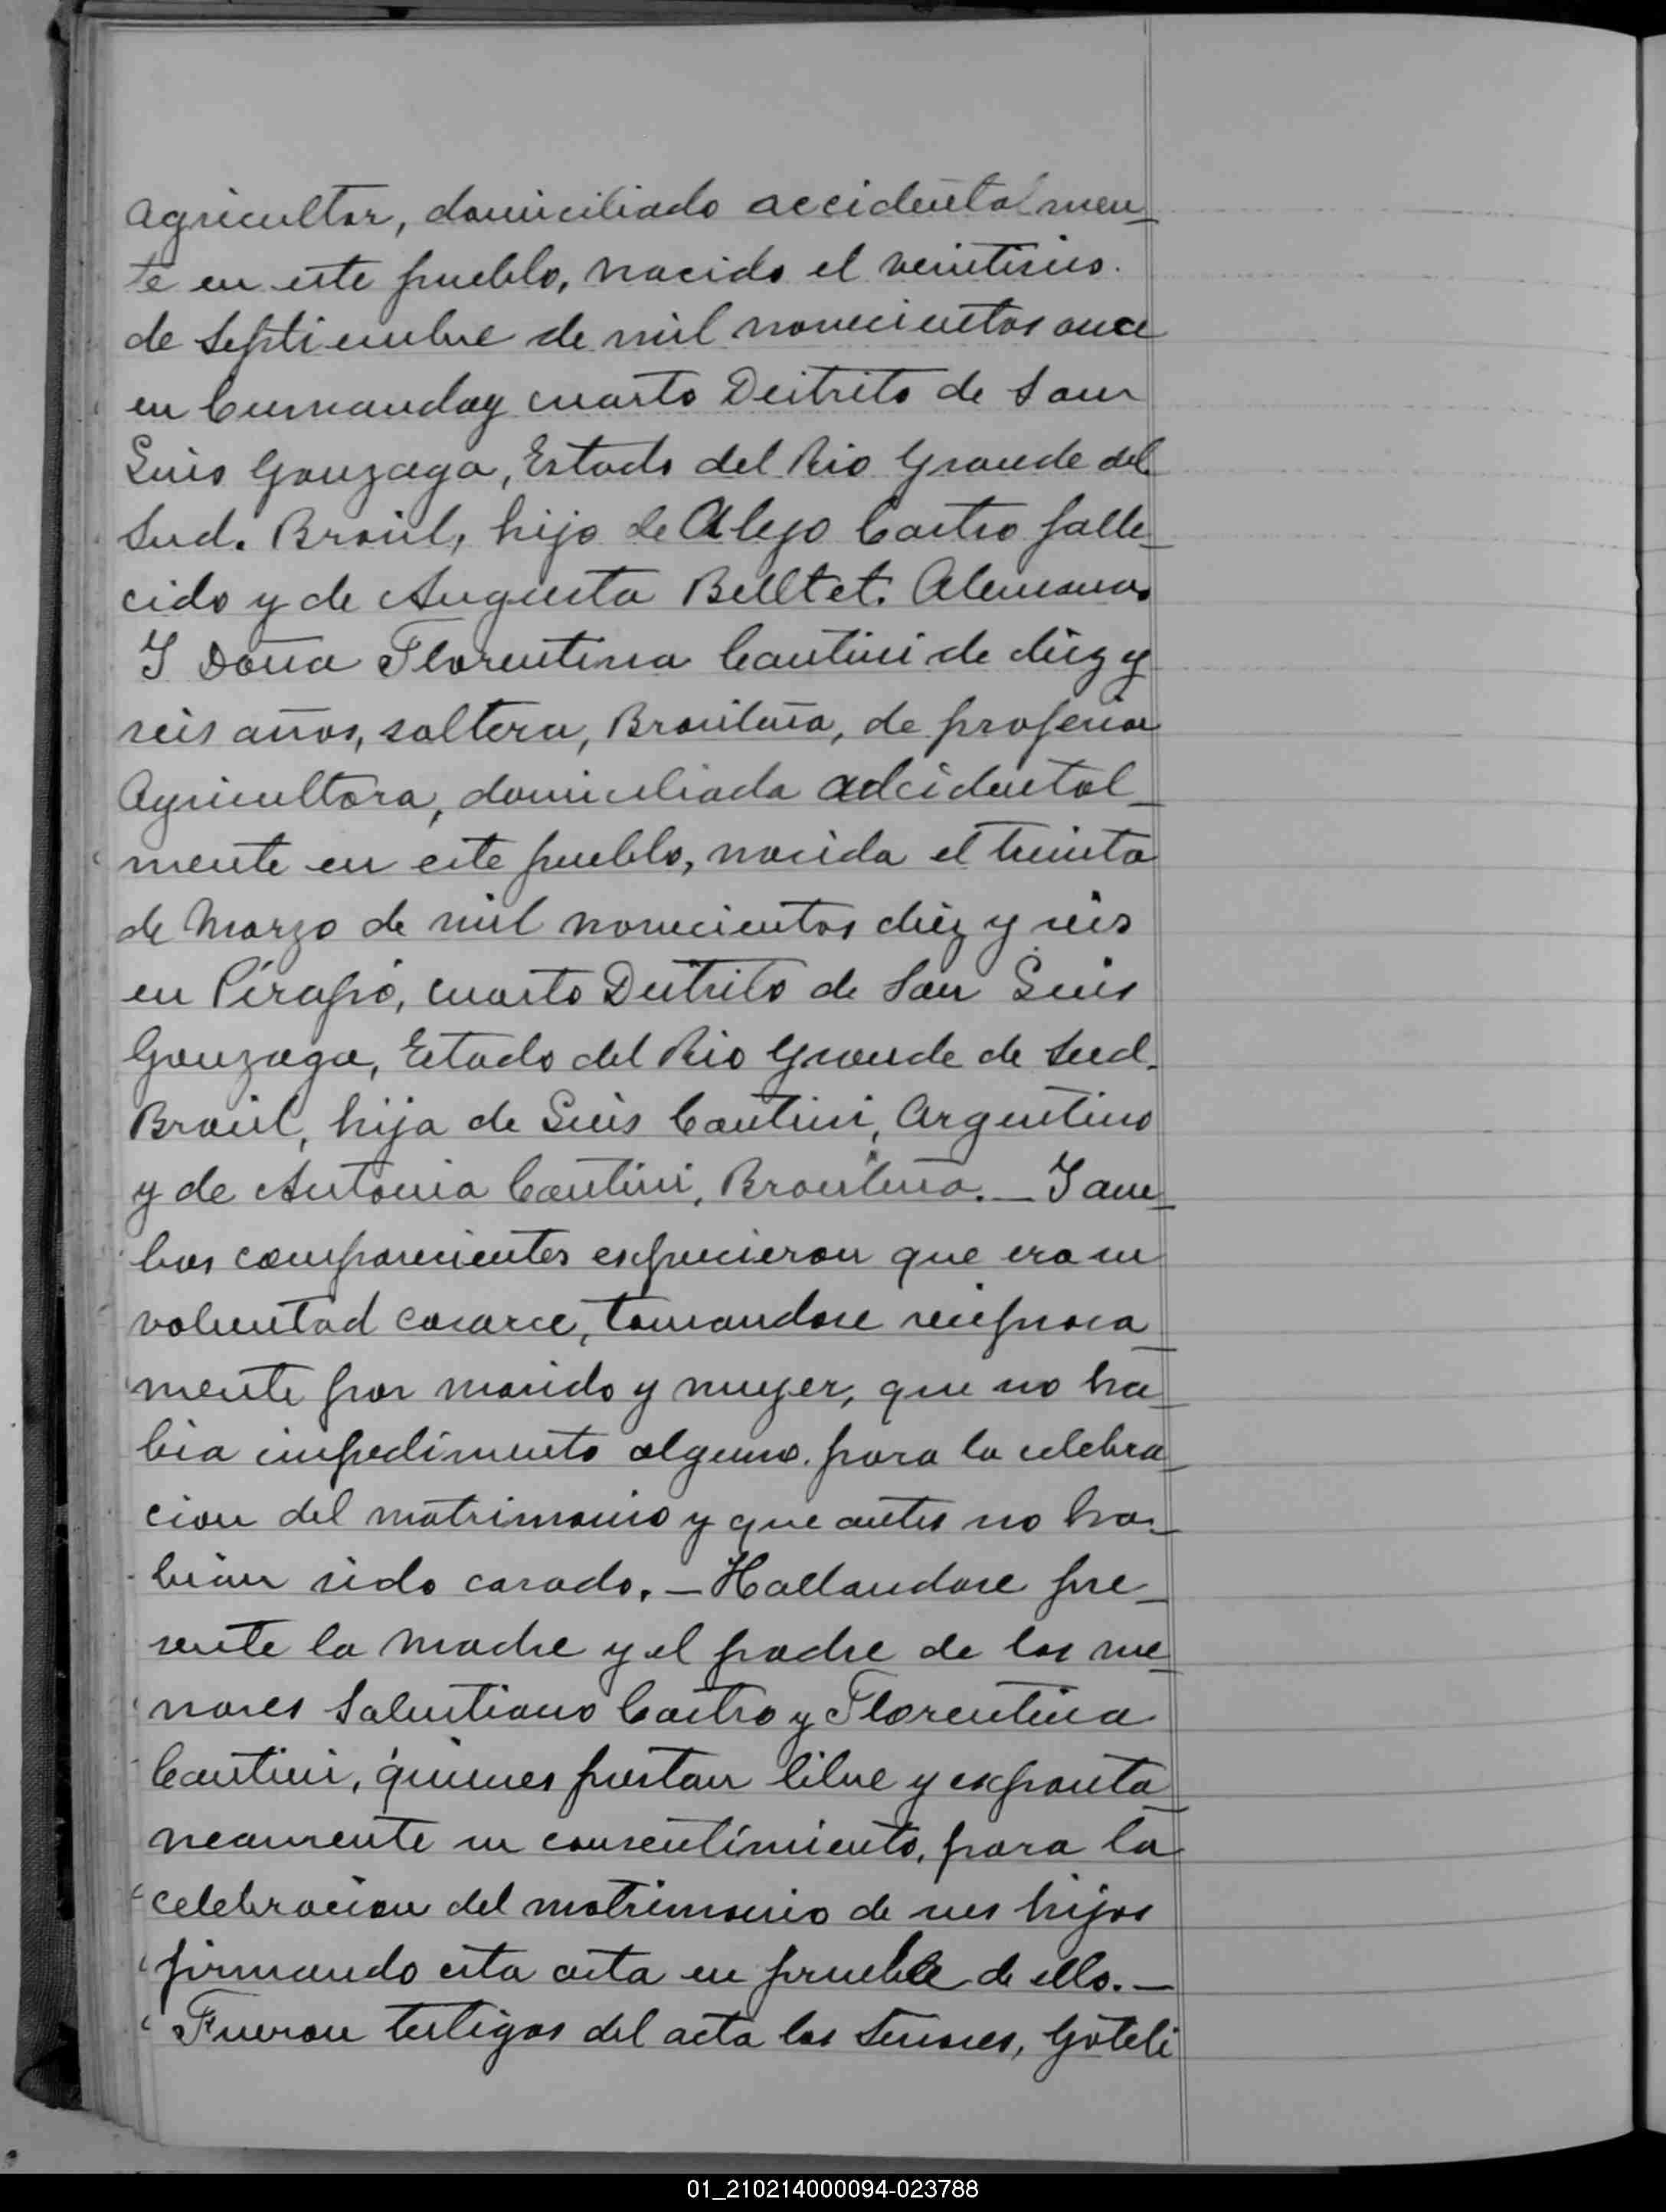 agricultor, domiciliado accidentalmen-
te en este pueblo, nacido el
de Septiembre de mil novecientos once
en cuarto Deitrito de San
Luis Gonzaga, Estado del Rio Grande del
Sud. Brasil, hijo de Alejo Castro falle-
cido y de Augusta Belltet. Alemana.
Y Doña Florentina Cantini de diez y
seis años, soltera, Brasileña, de profesion
Agricultora, domiciliada adcidental-
mente en este pueblo, nacida el treinta
de Marzo de mil novecientos diez y seis
en Pirapó, cuarto Deitrito de San Luis
Gonzaga, Estado del Rio Grande de Sud.
Brasil, hija de Luis Cantini, Argentino
y de Antonia Cantini, Brasileña. — Y am-
bos comparecientes espucieron que era su
voluntad casarce, tomandose reciproca-
mente por marido y muger, que no ha-
bia impedimento alguno para la celebra-
cion del matrimonio y que antes no ha-
bian sido casado. — Hallandose pre-
sente la madre y el padre de los me-
nores Salustiano Castro y Florentina
Cantini, quienes prestan libre y esponta-
neamente su consentimiento, para la
celebracion del matrimonio de sus hijos
firmando esta acta en prueba de ello. —
Fueron testigos del acta los Señores, Göteli
01_210214000094-023788